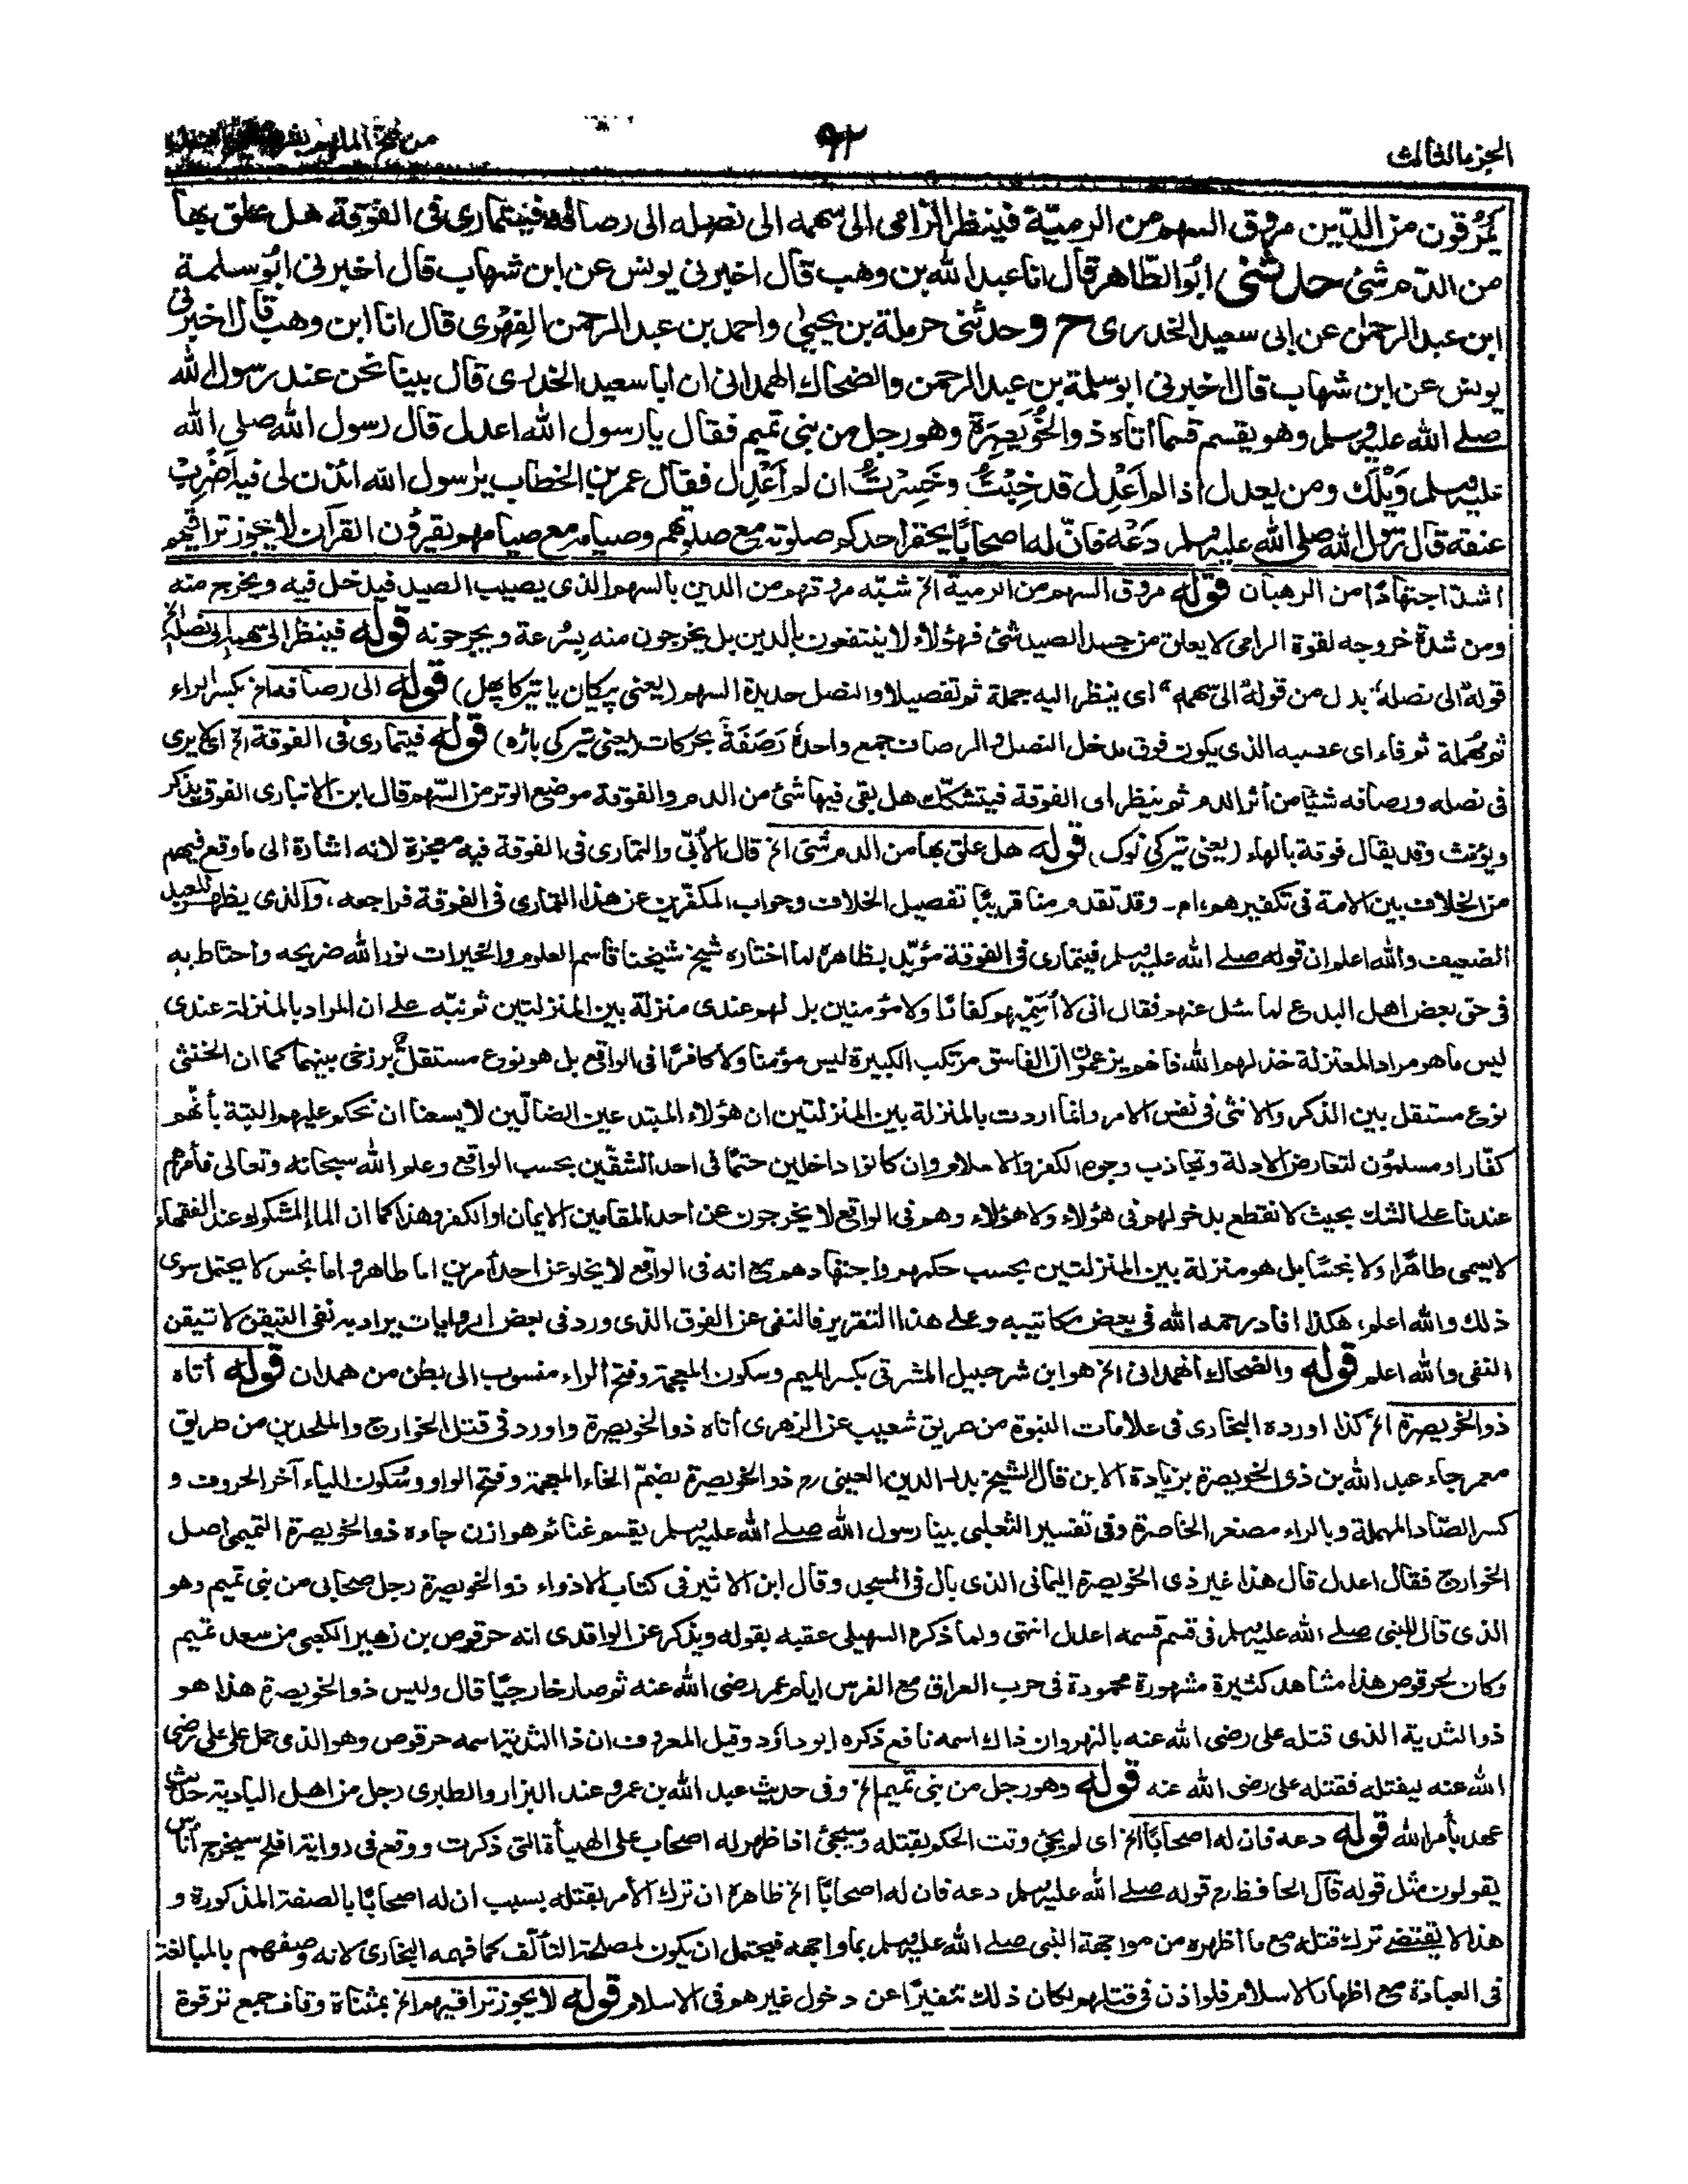 الجزء الثالث
٩٢
من فتح الملهم بشرح
يَمْرُقون من الدّين مروق السهم من الرميّة فينظر الرّامى الى سهمه الى نصله الى رصافه فيتمارى فى الفُوقة هل علق بها
من الدّم شئ حدثنى ابُو الطّاهر قال انا عبد الله بن وهب قال اخبرنى يونس عن ابن شهاب قال اخبرنى ابُو سلمة
ابن عبد الرحمٰن عن ابى سعيد الخدرى ح وحدثنى حرملة بن يحيىٰ واحمد بن عبد الرحمن الفِهْرى قال انا ابن وهب قال اخبرنى
يونس عن ابن شهاب قال اخبرنى ابو سلمة بن عبد الرحمن والضحاك الهمدانى ان ابا سعيد الخدرى قال بينا نحن عند رسول الله
صلے الله عليه وسلم وهو يقسم قسمًا أتاه ذو الخُوَيْصِرَة وهو رجل من بنى تميم فقال يا رسول الله اعدل قال رسول الله صلى الله
عليه وسلم وَيْلَكَ ومن يعدل اذا لم اَعْدِل قد خِبْتُ وخَسِرْتُ ان لم اَعْدِل فقال عمر بن الخطاب يا رسول الله ائذن لى فيه اَضْرِبْ
عنقه قال رسول الله صلى الله عليه وسلم دَعْه فانّ له اصحابًا يحقر احدكم صلوته مع صلوتهم وصيامه مع صيامهم يقرؤن القرآن لا يجوز تراقيهم
اشدّ اجتهادًا من الرهبان قوله مروق السهم من الرمية الخ شبّه مروقهم من الدين بالسهم الذى يصيب الصيد فيدخل فيه ويخرج منه
ومن شدّة خروجه لقوة الرامى لا يعلق من جسد الصيد شئ فهؤلاء لا ينتفعون بالدين بل يخرجون منه بسُرعة ويجرحونه قوله فينظر الى سهمه الى نصله الخ
قوله "الى نصله" بدل من قوله "الى سهمه" اى ينظر اليه جملة ثم تفصيلا والنصل حديدة السهم (يعنى پيكان يا تير كا پھل) قوله الى رصافه الخ بكسر الراء
ثم مُهملة ثم فاء اى عصبه الذى يكون فوق مدخل النصل والرصاف جمع واحدهُ رَصَفَةٌ بحركات (يعنى تير كى باڑه) قوله فيتمارى فى الفوقة الخ اى لا يرى
فى نصله ورصافه شيئًا من أثر الدم ثم ينظر اى الفوقة فيتشكّك هل بقى فيها شئ من الدم والفوقة موضع الوتر من السّهم قال ابن الانبارى الفوق يذكر
ويؤنث وقد يقال فوقة بالهاء (يعنى تير كى نوك) قوله هل علق بها من الدم شئ الخ قال الأبّى والتمارى فى الفوقة فيه معجزة لانه اشارة الى ما وقع فيهم
من الخلاف بين الامة فى تكفيرهم ام لا وقد تقدم منا قريبًا تفصيل الخلاف وجواب المكفّرين عن هذا التمارى فى الفوقة فراجعه، والذى يظهر للعبد
الضعيف والله اعلم ان قوله صلے الله عليه وسلم فيتمارى فى الفوقة مؤيّد بظاهره لما اختاره شيخ شيخنا قاسم العلوم والخيرات نور الله ضريحه واحتاط به
فى حق بعض اهل البدع لما سئل عنهم فقال انى لا اُسَمِّيهم كفارًا ولا مؤمنين بل لهم عندى منزلة بين المنزلتين ثم نبّه على ان المراد بالمنزلة عندى
ليس ما هو مراد المعتزلة خذلهم الله فانهم يزعمون ان الفاسق مرتكب الكبيرة ليس مؤمنا ولا كافرًا فى الواقع بل هو نوع مستقل برزخى بينهما كما ان الخنثى
نوع مستقل بين الذكر والانثى فى نفس الامر وانما اردت بالمنزلة بين المنزلتين ان هؤلاء المبتدعين الضالّين لا يسعنا ان نحكم عليهم البتة بأنهم
كفّار او مسلمون لتعارض الادلة وتجاذب وجوه الكفر والاسلام وان كانوا داخلين حتمًا فى احد الشقّين بحسب الواقع وعلم الله سبحانه وتعالى فأمرهم
عندنا على الشك بحيث لا نقطع بدخولهم فى هؤلاء ولا هؤلاء وهم فى الواقع لا يخرجون عن احد المقامين الايمان او الكفر وهذا كما ان الماء المشكوك عند الفقهاء
لا يسمى طاهرًا ولا نجسًا بل هو منزلة بين المنزلتين بحسب حكمهم واجتهادهم مع انه فى الواقع لا يخلو عن احد أمرين اما طاهر واما نجس لا يحتمل سوى
ذلك والله اعلم، هكذا افاد رحمه الله فى بعض مكاتيبه وعلى هذا التقرير فالنفى عن الفوق الذى ورد فى بعض الروايات يراد به نفى التيقن لا تيقن
النفى والله اعلم قوله والضحاك الهمدانى الخ هو ابن شرحبيل المشرقى بكسر الميم وسكون المعجمة وفتح الراء منسوب الى بطن من همدان قوله أتاه
ذو الخويصرة الخ كذا اورده البخارى فى علامات النبوة من طريق شعيب عن الزهرى أتاه ذو الخويصرة واورد فى قتل الخوارج والملحدين من طريق
معمر جاء عبد الله بن ذى الخويصرة بزيادة الابن قال الشيخ بدر الدين العينى رح ذو الخويصرة بضمّ الخاء المعجمة وفتح الواو وسُكون الياء آخر الحروف و
كسر الصّاد المهملة وبالراء مصغر الخاصرة وفى تفسير الثعلبى بينا رسول الله صلے الله عليه وسلم يقسم غنائم هوازن جاءه ذو الخويصرة التميمى اصل
الخوارج فقال اعدل قال هذا غير ذى الخويصرة اليمانى الذى بال فى المسجد وقال ابن الاثير فى كتاب الاذواء ذو الخويصرة رجل صحابى من بنى تميم وهو
الذى قال للنبى صلے الله عليه وسلم فى قسم قسمه اعدل انتهى ولما ذكره السهيلى عقبه بقوله ويذكر عن الواقدى انه حرقوص بن زهير الكعبى من سعد تميم
وكان لحرقوص هذا مشاهد كثيرة مشهورة محمودة فى حرب العراق مع الفرس ايام عمر رضى الله عنه ثم صار خارجيًّا قال وليس ذو الخويصرة هذا هو
ذو الثدية الذى قتله على رضى الله عنه بالنهروان ذاك اسمه نافع ذكره ابو داؤد وقيل المعروف ان ذا الثدية اسمه حرقوص وهو الذى حمل على على رضى
الله عنه ليقتله فقتله على رضى الله عنه قوله وهو رجل من بنى تميم الخ وفى حديث عبد الله بن عمرو عند البزار والطبرى رجل من اهل البادية حديث
عهد بأمر الله قوله دعه فان له اصحابًا الخ اى لم يجئ وقت الحكم بقتله وسيجئ اذا ظهر له اصحاب على الهيأة التى ذكرت ووقع فى رواية افلح سيخرج أناس
يقولون مثل قوله قال الحافظ رح قوله صلے الله عليه وسلم دعه فان له اصحابًا الخ ظاهره ان ترك الأمر بقتله بسبب ان له اصحابًا بالصفة المذكورة و
هذا لا يقتضے ترك قتله مع ما اظهره من مواجهة النبى صلے الله عليه وسلم بما واجهه فيحتمل ان يكون لمصلحة التألّف كما فهمه البخارى لانه وصفهم بالمبالغة
فى العبادة مع اظهار الاسلام فلو اذن فى قتلهم لكان ذلك تنفيرًا عن دخول غيرهم فى الاسلام قوله لا يجوز تراقيهم الخ بمثناة وقاف جمع ترقوة